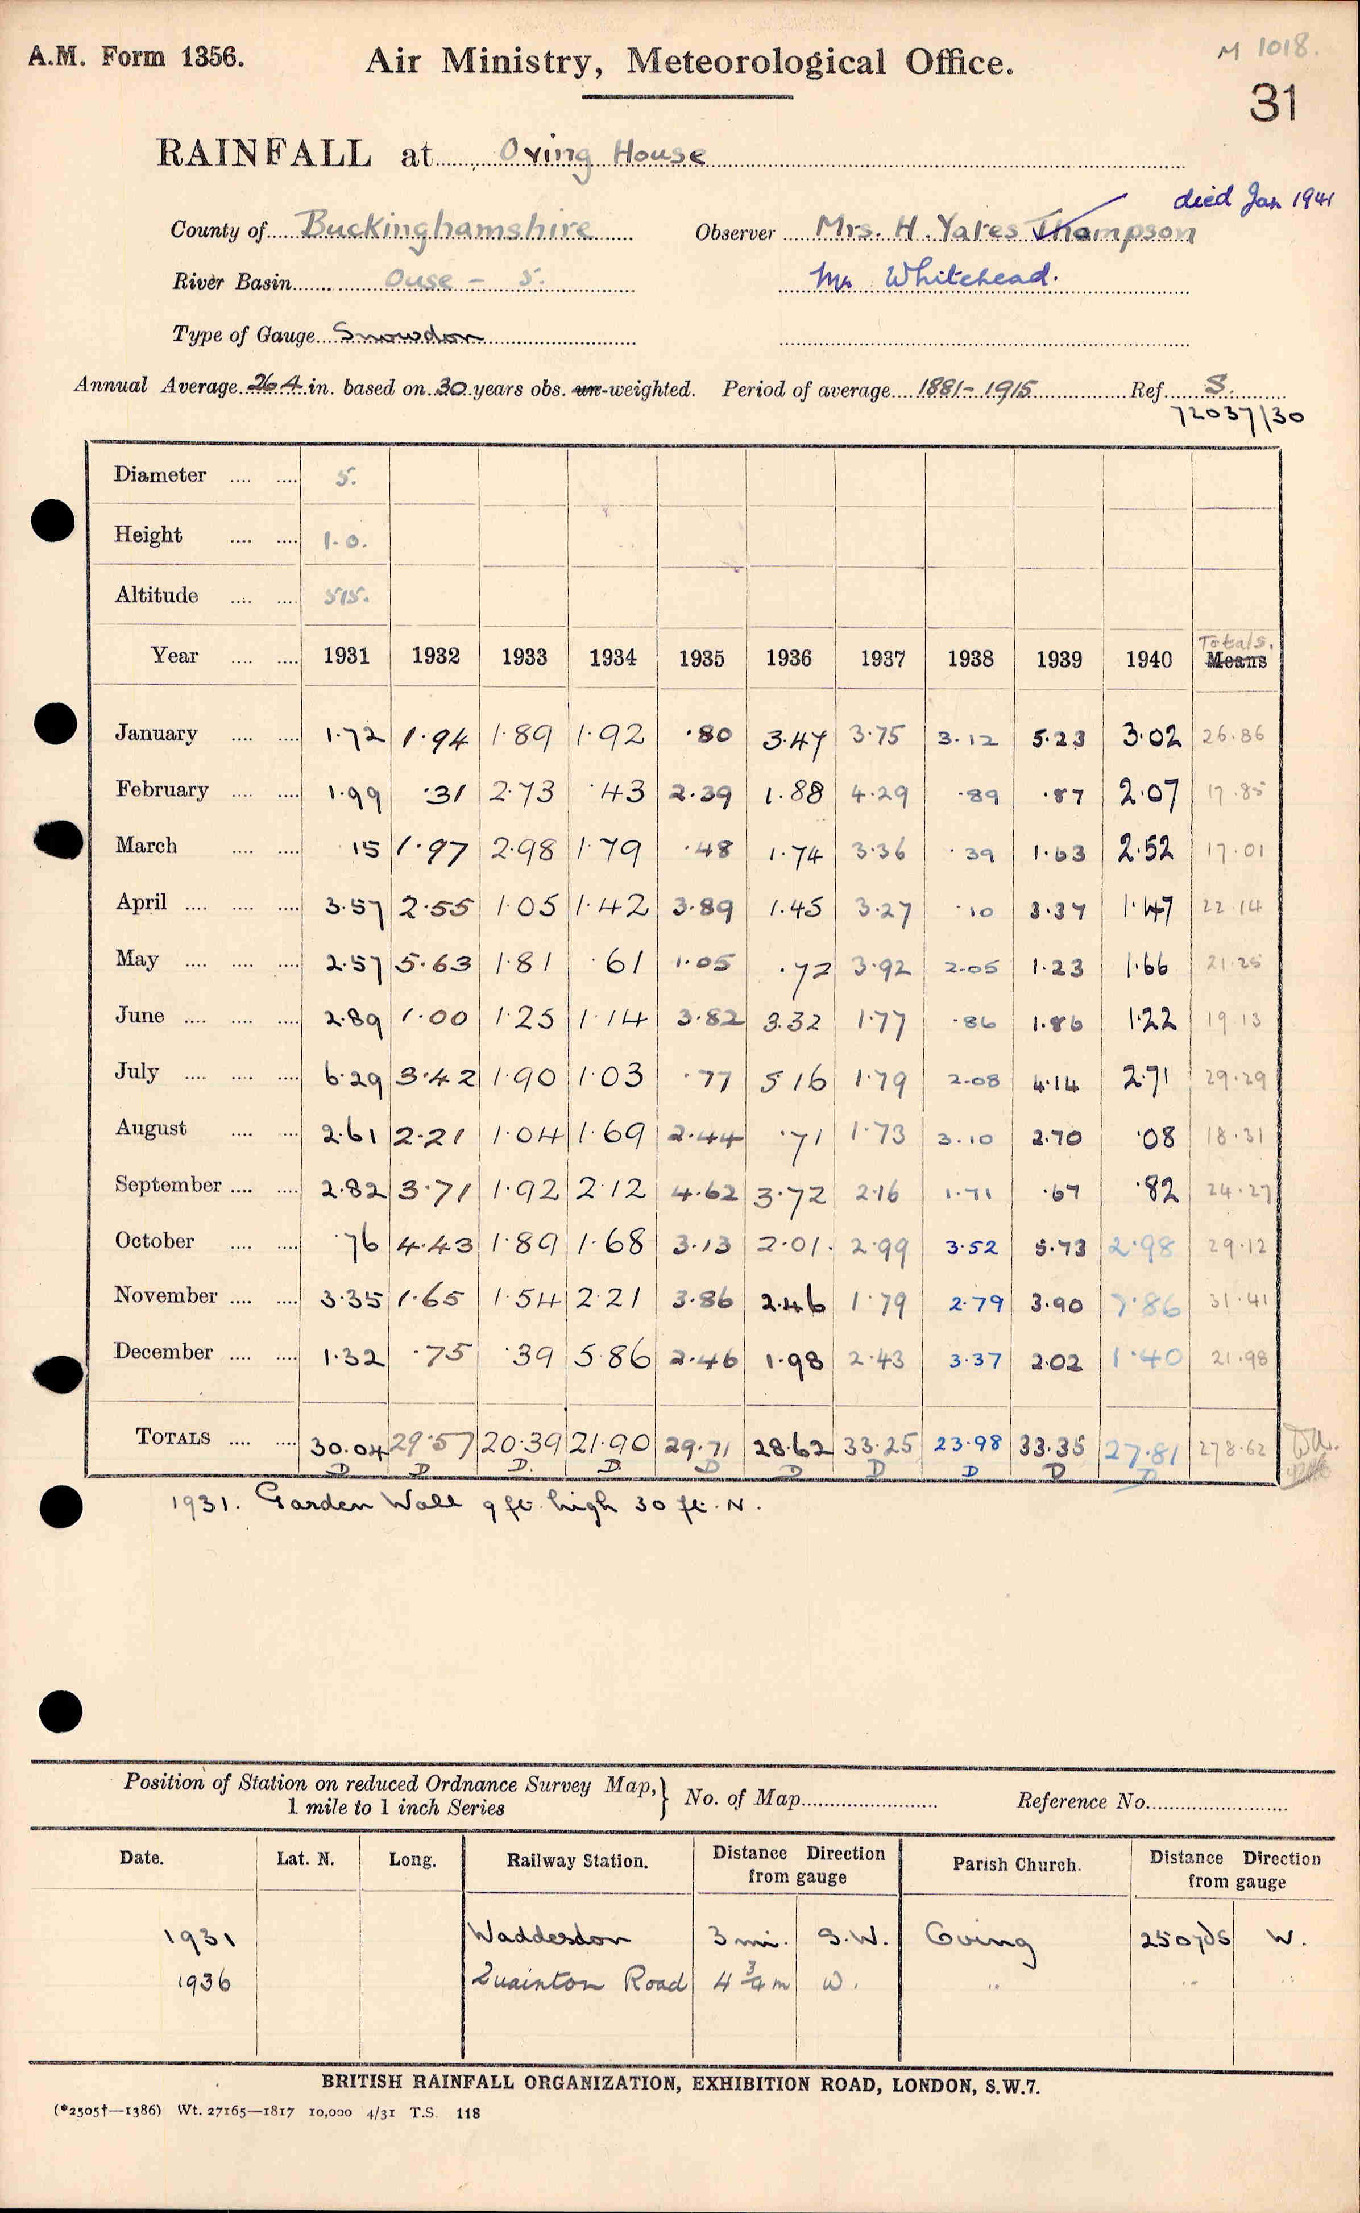 A.M. Form 1356. Air Ministry, Meteorological Office. M 1018.
31
RAINFALL at Oving House
died Jan 1941
County of Buckinghamshire Observer Mrs. H. Yates Thompson
River Basin Ouse - 5. Mr Whitehead.
Type of Gauge Snowdon
Annual Average 26.4 in. based on 30 years obs. un-weighted. Period of average 1881-1915 Ref S.
72037/30
Diameter 5.
Height 1.0.
Altitude 515.
Totals.
Year 1931 1932 1933 1934 1935 1936 1937 1938 1939 1940 Means
January 1.72 1.94 1.89 1.92 .80 3.47 3.75 3.12 5.23 3.02 26.86
February 1.99 .31 2.73 .43 2.39 1.88 4.29 .89 .87 2.07 17.85
March .15 1.97 2.98 1.79 .48 1.74 3.36 .39 1.63 2.52 17.01
April 3.57 2.55 1.05 1.42 3.89 1.45 3.27 .10 3.37 1.47 22.14
May 2.57 5.63 1.81 .61 1.05 .72 3.92 2.05 1.23 1.66 21.25
June 2.89 1.00 1.25 1.14 3.82 3.32 1.77 .86 1.86 1.22 19.13
July 6.29 3.42 1.90 1.03 .77 5.16 1.79 2.08 4.14 2.71 29.29
August 2.61 2.21 1.04 1.69 2.44 .71 1.73 3.10 2.70 .08 18.31
September 2.82 3.71 1.92 2.12 4.62 3.72 2.16 1.71 .67 .82 24.27
October .76 4.43 1.89 1.68 3.13 2.01. 2.99 3.52 5.73 2.98 29.12
November 3.35 1.65 1.54 2.21 3.86 2.46 1.79 2.79 3.90 7.86 31.41
December 1.32 .75 .39 5.86 2.46 1.98 2.43 3.37 2.02 1.40 21.98
TOTALS 30.04 29.57 20.39 21.90 29.71 28.62 33.25 23.98 33.35 27.81 278.62
D D D. D D D D D D D
1931. Garden Wall 9 ft. high 30 ft. N.
Position of Station on reduced Ordnance Survey Map,} No. of Map Reference No.
1 mile to 1 inch Series
Date. Lat. N. Long. Railway Station. Distance Direction Parish Church. Distance Direction
from gauge from gauge
1931 Waddesdon 3 mi. S.W. Oving 250 yds W.
1936 Quainton Road 4 3/4 m W. " " "
BRITISH RAINFALL ORGANIZATION, EXHIBITION ROAD, LONDON, S.W.7.
(*2505†—1386) Wt. 27165—1817 10,000 4/31 T.S. 118